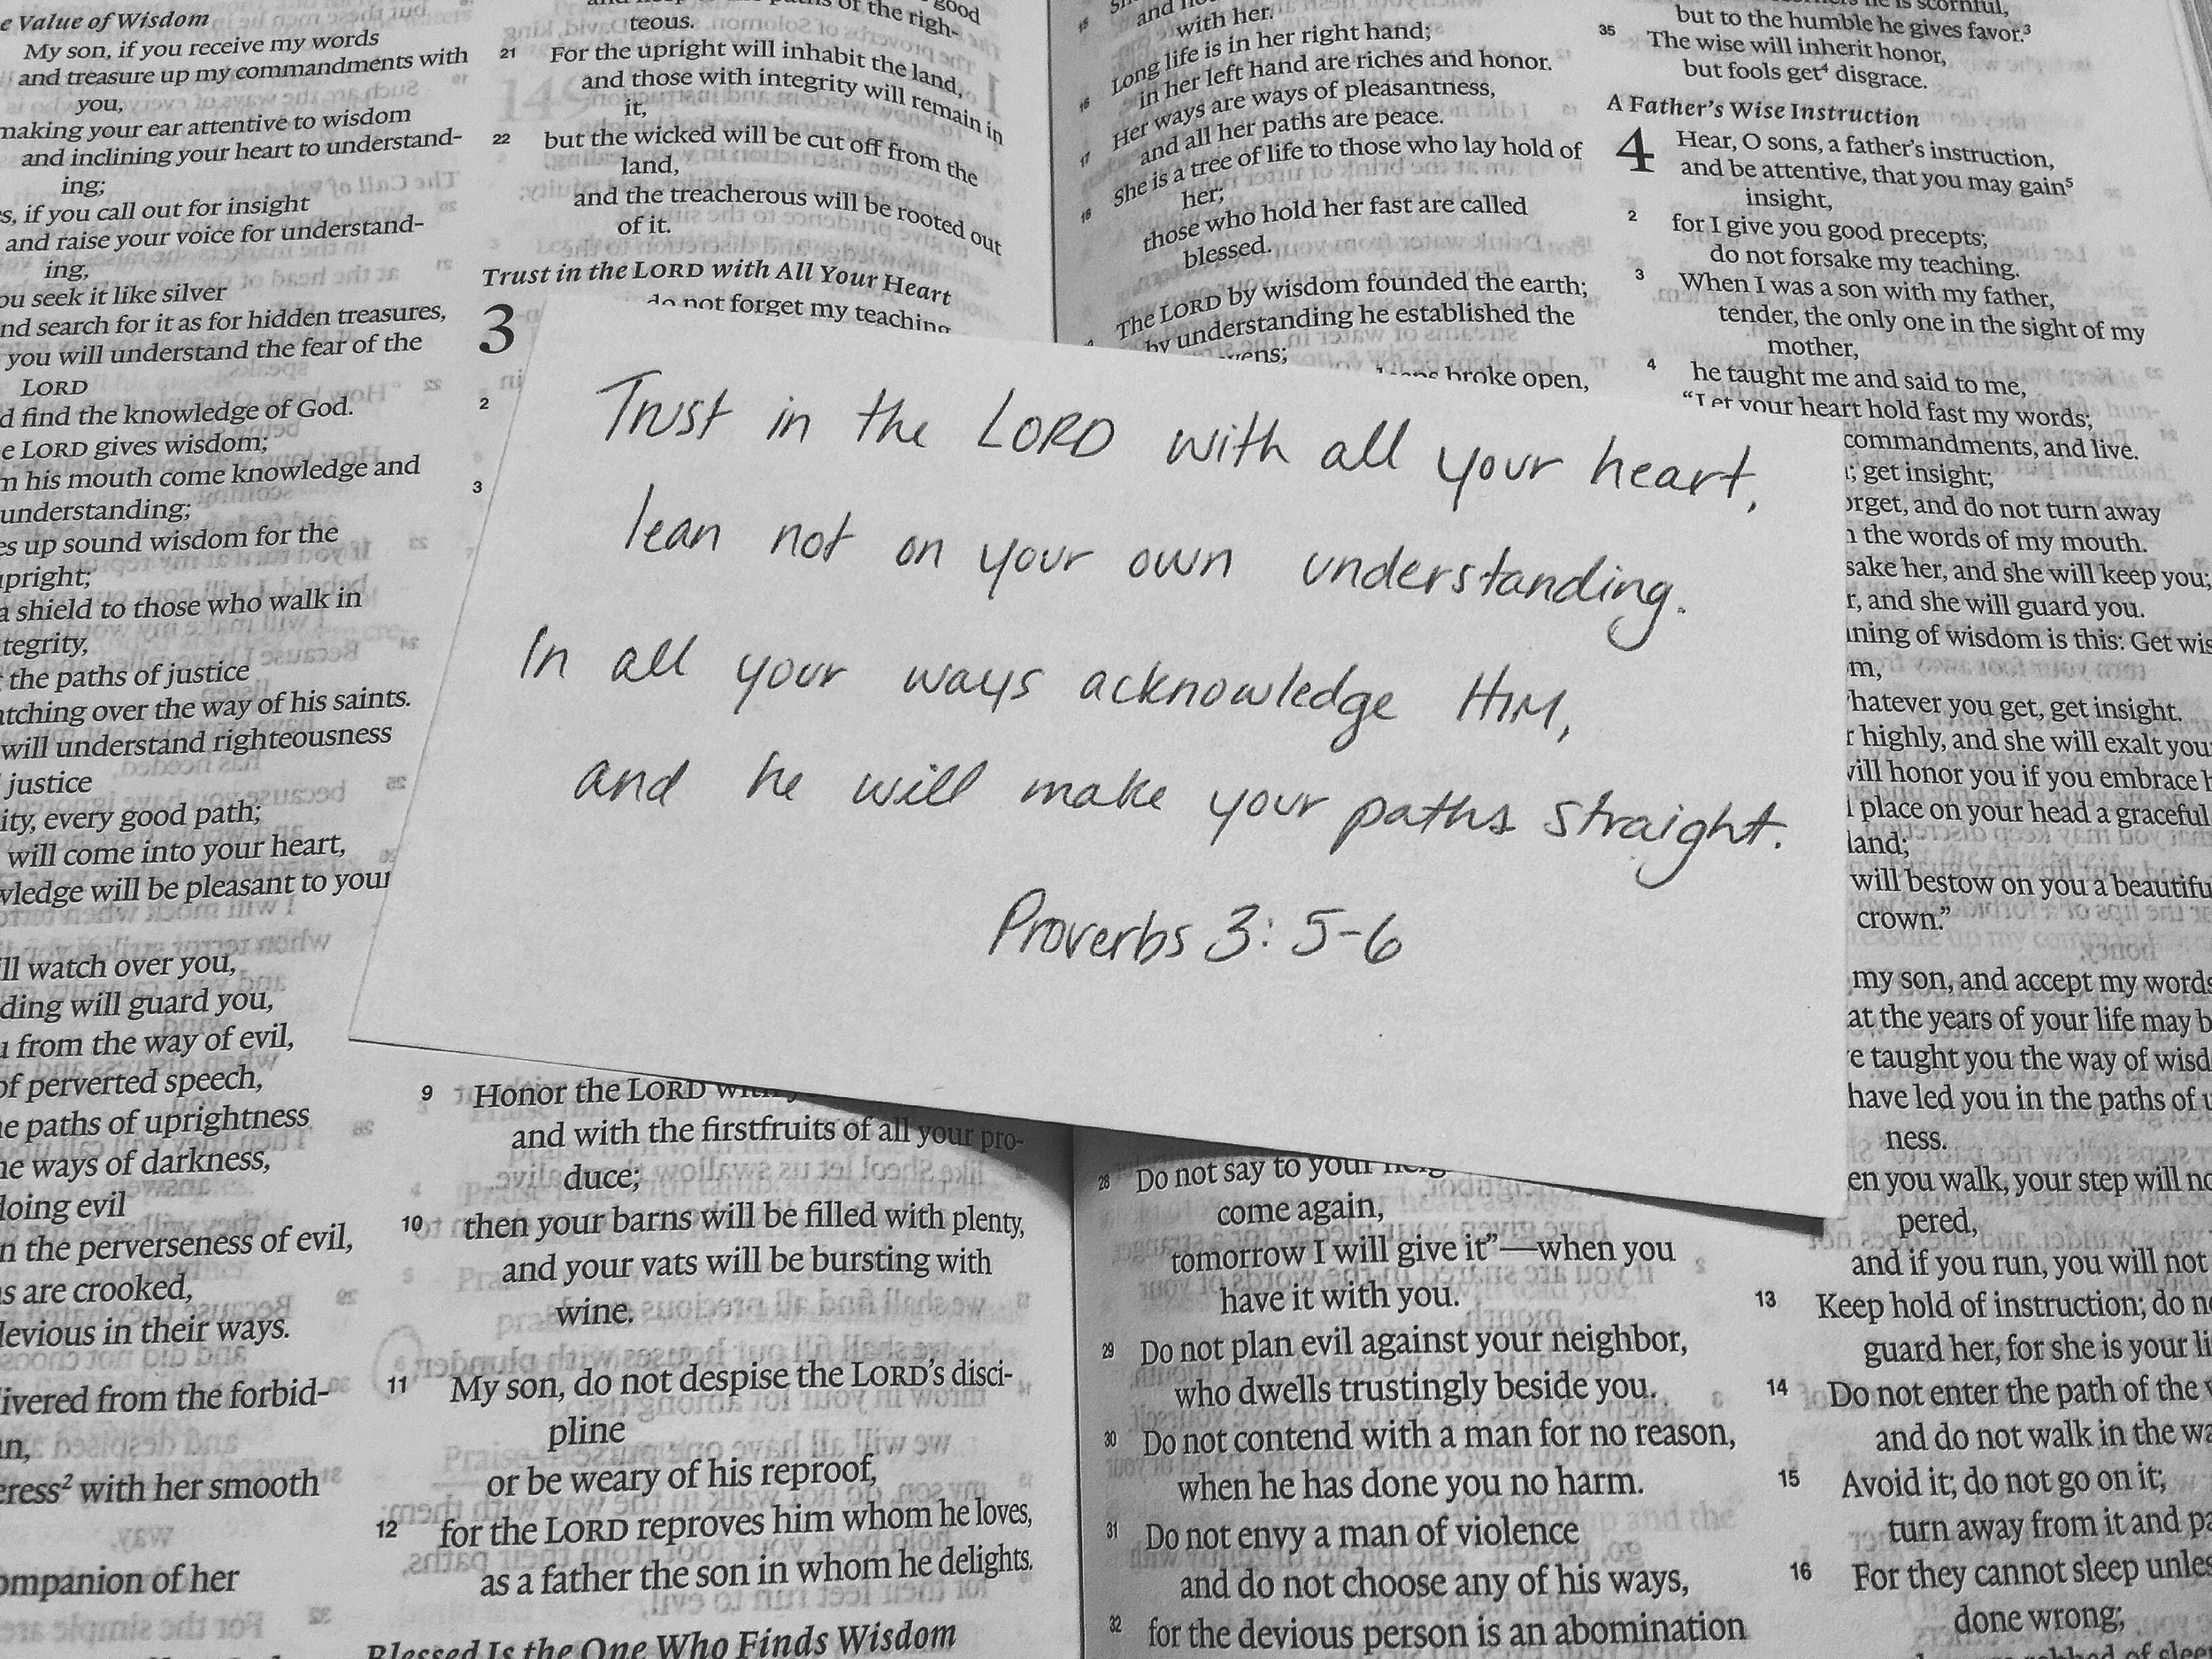 e Value of Wisdom
My son, if you receive my words
and treasure up my commandments with
you,
making your ear attentive to wisdom
and inclining your heart to understand-
ing;
s, if you call out for insight
and raise your voice for understand-
ing,
ou seek it like silver
nd search for it as for hidden treasures,
you will understand the fear of the
LORD
d find the knowledge of God.
e LORD gives wisdom;
m his mouth come knowledge and
understanding;
es up sound wisdom for the
upright;
a shield to those who walk in
tegrity,
the paths of justice
atching over the way of his saints.
will understand righteousness
justice
ity, every good path;
will come into your heart,
wledge will be pleasant to your
ll watch over you,
ding will guard you,
u from the way of evil,
of perverted speech,
he paths of uprightness
he ways of darkness,
doing evil
n the perverseness of evil,
s are crooked,
devious in their ways.
ivered from the forbid-
n,
eress² with her smooth
ompanion of her
good
of the righ-
teous.
21 For the upright will inhabit the land,
and those with integrity will remain in
it,
22 but the wicked will be cut off from the
land,
and the treacherous will be rooted out
of it.
Trust in the LORD with All Your Heart
3 do not forget my teaching
2
3
Trust in the LORD with all your heart,
lean not on your own understanding.
In all your ways acknowledge HIM,
and he will make your paths straight.
Proverbs 3: 5-6
9 Honor the LORD with
and with the firstfruits of all your pro-
duce;
10 then your barns will be filled with plenty,
and your vats will be bursting with
wine.
11 My son, do not despise the LORD's disci-
pline
or be weary of his reproof,
12 for the LORD reproves him whom he loves,
as a father the son in whom he delights.
Blessed Is the One Who Finds Wisdom
15 and
with her.
16 Long life is in her right hand;
in her left hand are riches and honor.
17 Her ways are ways of pleasantness,
and all her paths are peace.
18 She is a tree of life to those who lay hold of
her;
those who hold her fast are called
blessed.
The LORD by wisdom founded the earth;
by understanding he established the
vens;
broke open,
28 Do not say to your neig
come again,
tomorrow I will give it”—when you
have it with you.
29 Do not plan evil against your neighbor,
who dwells trustingly beside you.
30 Do not contend with a man for no reason,
when he has done you no harm.
31 Do not envy a man of violence
and do not choose any of his ways,
32 for the devious person is an abomination
is scornful,
but to the humble he gives favor.³
35 The wise will inherit honor,
but fools get⁴ disgrace.
A Father's Wise Instruction
4 Hear, O sons, a father's instruction,
and be attentive, that you may gain⁵
insight,
2 for I give you good precepts;
do not forsake my teaching.
3 When I was a son with my father,
tender, the only one in the sight of my
mother,
4 he taught me and said to me,
“Let your heart hold fast my words;
commandments, and live.
; get insight;
orget, and do not turn away
the words of my mouth.
sake her, and she will keep you;
r, and she will guard you.
nning of wisdom is this: Get wis
m,
hatever you get, get insight.
r highly, and she will exalt you
will honor you if you embrace h
l place on your head a graceful
land;
will bestow on you a beautifu
crown.”
my son, and accept my words
at the years of your life may b
e taught you the way of wisd
have led you in the paths of u
ness.
en you walk, your step will no
pered,
and if you run, you will not
13 Keep hold of instruction; do no
guard her, for she is your li
14 Do not enter the path of the w
and do not walk in the wa
15 Avoid it; do not go on it;
turn away from it and pa
16 For they cannot sleep unles
done wrong;
of slee